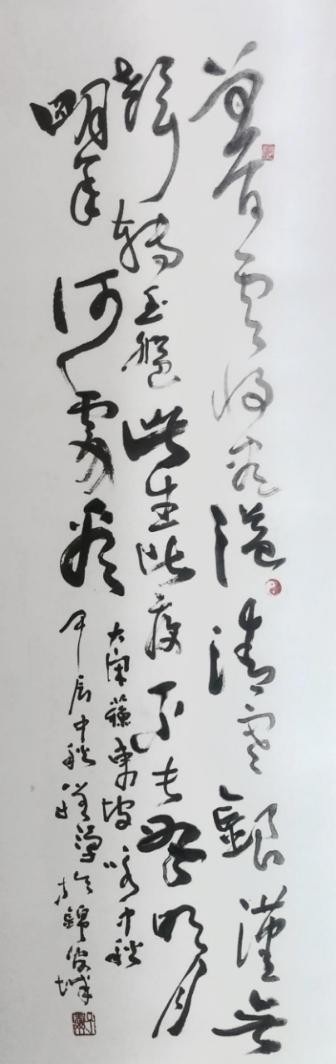 暮雲收盡溢清寒銀漢無
聲轉玉盤此生此夜不長好明月
明年何處看
大宋蘇東坡詠中秋
甲辰中秋